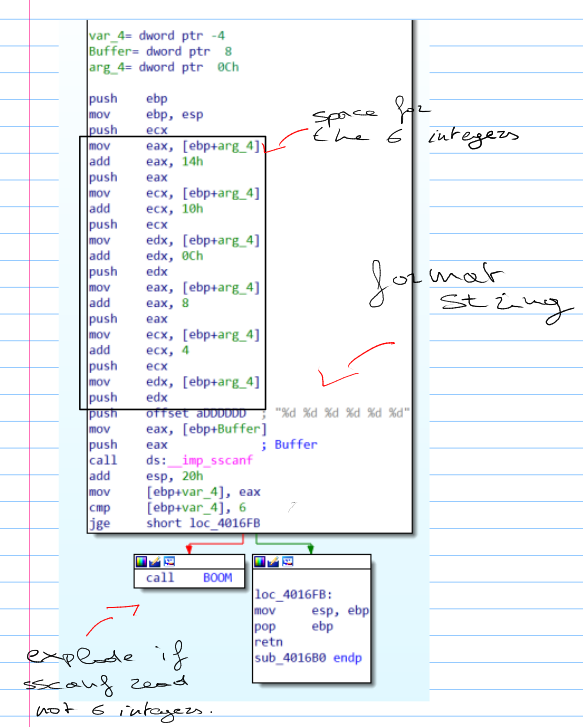 var_4= dword ptr -4
Buffer= dword ptr  8
arg_4= dword ptr  0Ch
push    ebp
mov     ebp, esp
push    ecx
mov     eax, [ebp+arg_4]
add     eax, 14h
push    eax
mov     ecx, [ebp+arg_4]
add     ecx, 10h
push    ecx
mov     edx, [ebp+arg_4]
add     edx, 0Ch
push    edx
mov     eax, [ebp+arg_4]
add     eax, 8
push    eax
mov     ecx, [ebp+arg_4]
add     ecx, 4
push    ecx
mov     edx, [ebp+arg_4]
push    edx
push    offset aDDDDDD  ; "%d %d %d %d %d %d"
mov     eax, [ebp+Buffer]
push    eax             ; Buffer
call    ds:__imp_sscanf
add     esp, 20h
mov     [ebp+var_4], eax
cmp     [ebp+var_4], 6
jge     short loc_4016FB
space for
the 6 integers
format
string
call    BOOM
loc_4016FB:
mov     esp, ebp
pop     ebp
retn
sub_4016B0 endp
explode if
sscanf read
not 6 integers.